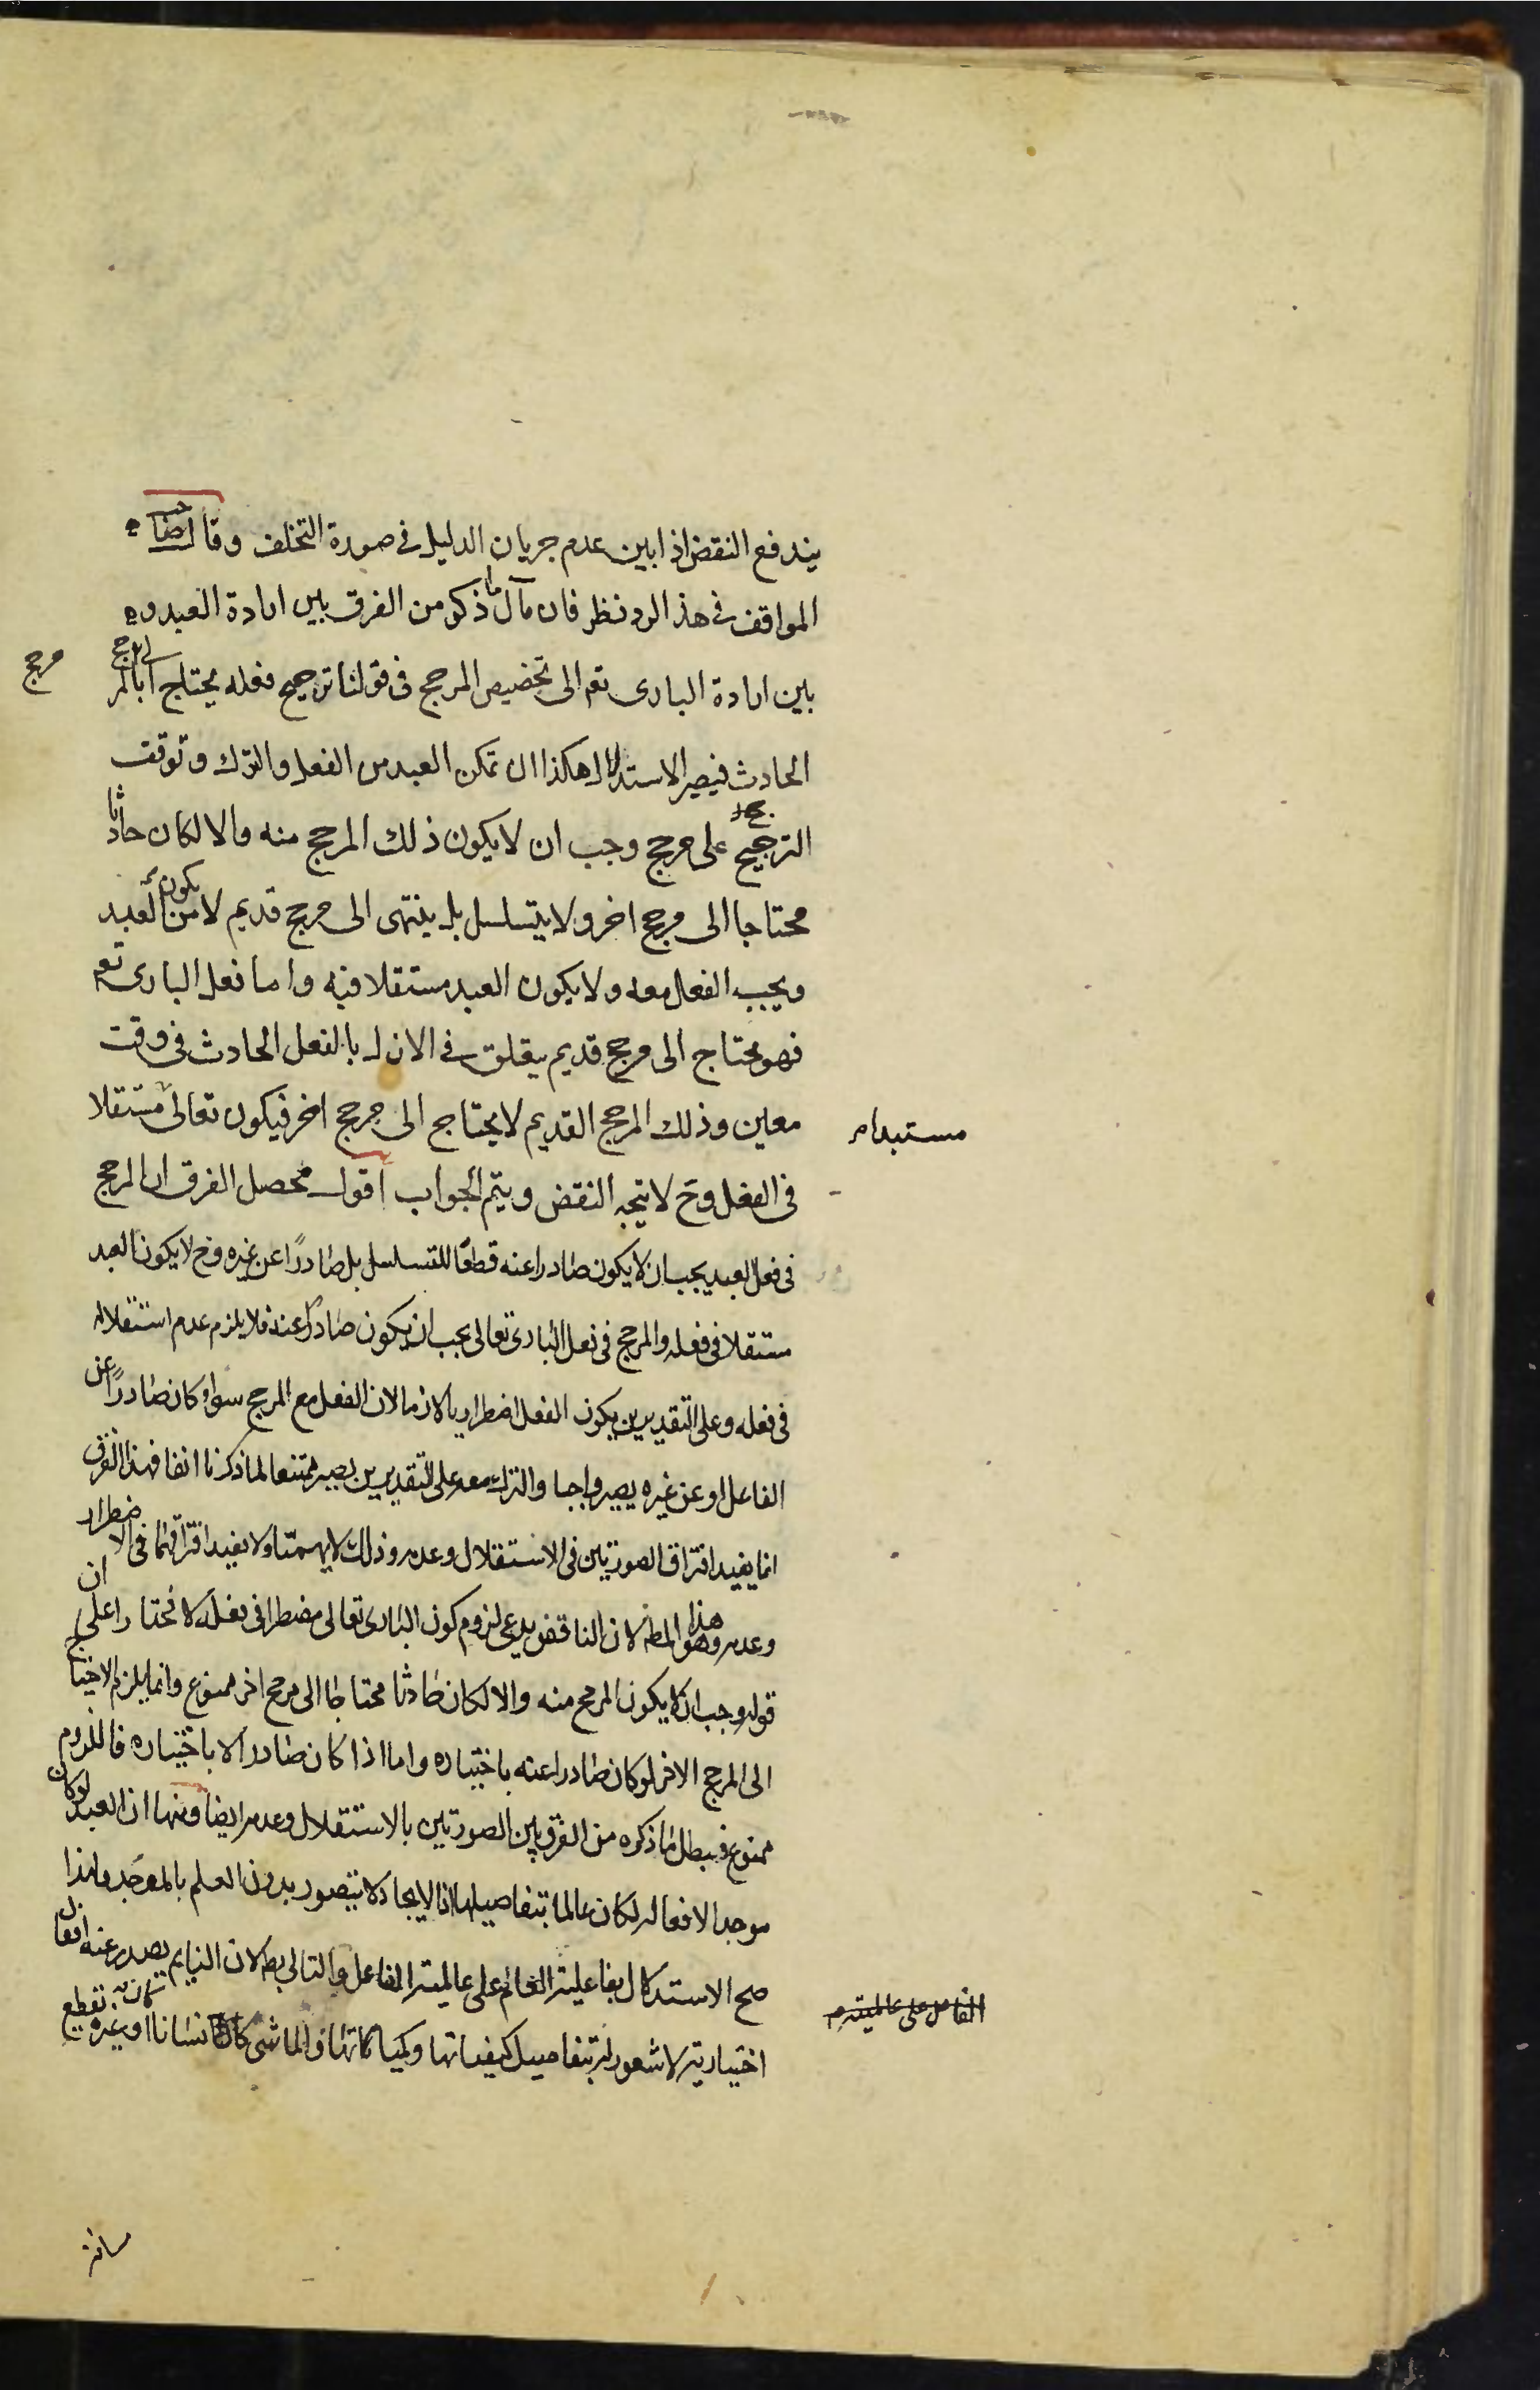 يندفع النقض اذا بين عدم جريان الدليل في صورة التخلف وقال صاحب
المواقف في هذ الرد نظر فان مآل ما ذكر من الفرق بين ارادة العبد و
بين ارادة الباري تعم الى تخصيص المرجح في قولنا ترجيح فعله يحتاج الى مرجح
مرجح
الحادث فيصير الاستدلال هكذا ان تمكن العبد من الفعل والترك وتوقف
الترجيح على مرجح وجب ان لا يكون ذلك المرجح منه والا لكان حادثا
محتاجا الى مرجح اخر ولا يتسلسل بل ينتهى الى مرجح قديم لا يكون من العبد
ويجب الفعل معه ولا يكون العبد مستقلا فيه واما فعل الباري تعم
فهو محتاج الى مرجح قديم يتعلق في الازل بالفعل الحادث في وقت
معين وذلك المرجح القديم لا يحتاج الى مرجح اخر فيكون تعالى مستقلا
مستبدا م
في الفعل وح لا يتجه النقض ويتم الجواب اقول محصل الفرق ان المرجح
في فعل العبد يجب ان لا يكون صادرا عنه قطعًا للتسلسل بل صادرًا عن غيره وح لا يكون العبد
مستقلا في فعله والمرجح في فعل الباري تعالى يجب ان يكون صادرًا عنه فلا يلزم عدم استقلاله
في فعله وعلى التقديرين يكون الفعل اضطراريا لازما لان الفعل مع المرجح سواء كان صادرًا عن
الفاعل او عن غيره يصير واجبا والترك معه على التقديرين يصير ممتنعا لما ذكرنا انفا فهذا الفرق
انما يفيد افتراق الصورتين في الاستقلال وعدمه وذلك لا يهمنا ولا يفيد افتراقهما في الاضطرار
وعدمه وهذا هو المط لان الناقض يدعى لزوم كون الباري تعالى مضطرا في فعله لا مختارا على ان
قوله وجب ان لا يكون المرجح منه والا لكان حادثا محتاجا الى مرجح اخر ممنوع وانما يلزم الاحتياج
الى المرجح الاخر لو كان صادرا عنه باختياره واما اذا كان صادرا لا باختياره فاللزوم
ممنوع فبطل ما ذكره من الفرق بين الصورتين بالاستقلال وعدمه ايضا ومنها ان العبد لو كان
موجدا لافعاله لكان عالما بتفاصيلها اذ الايجاد لا يتصور بدون العلم بالموجد ولهذا
صح الاستدلال بفاعلية العالم على عالمية الفاعل والتالي بط لان النايم يصدر عنه افعال
الفاعل على عالميته م
اختيارية لا شعور له بتفاصيل كيفياتها وكمياتها والماشى كان انسانا او غيره يقطع
مسافة